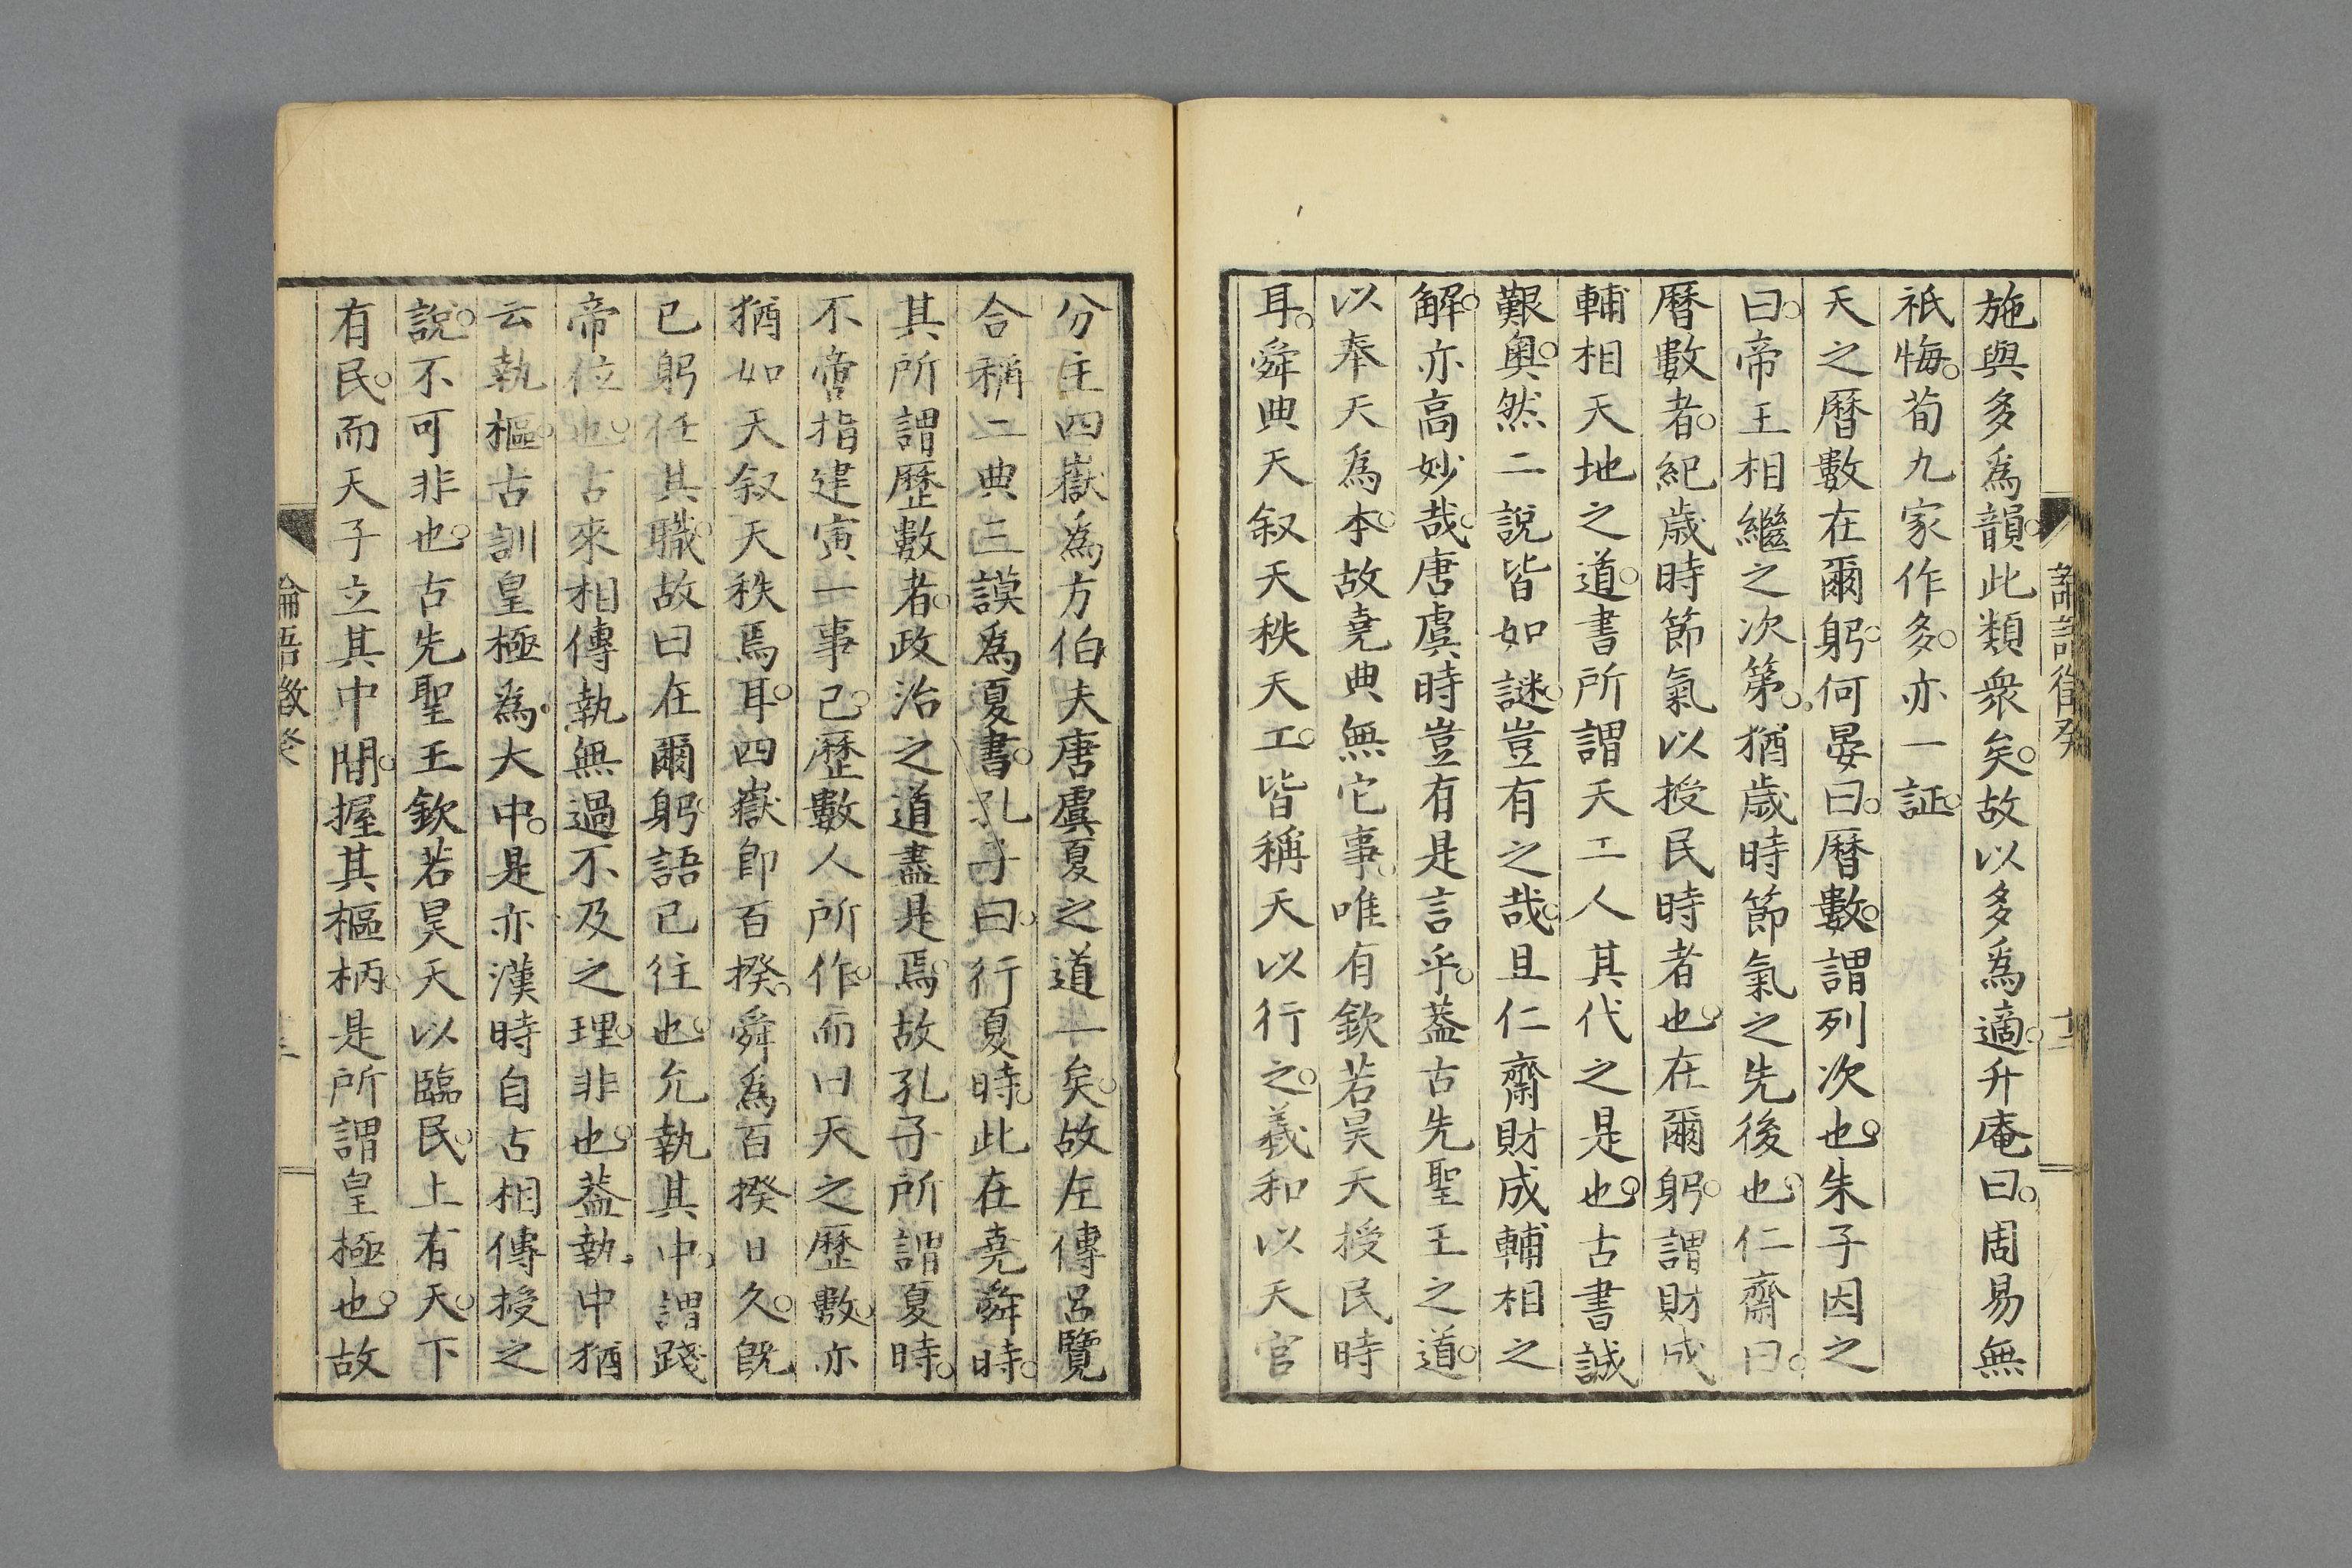 施與多爲韻。此類衆矣。故以多爲適。升庵曰。周易無
祇悔。荀九家作多。亦一証。
天之曆數在爾躬。何晏曰。曆數。謂列次也。朱子因之
曰。帝王相繼之次第。猶歲時節氣之先後也。仁齋曰。
曆數者。紀歲時節氣以授民時者也。在爾躬。謂財成
輔相天地之道。書所謂天工人其代之是也。古書誠
艱奧。然二說皆如謎。豈有之哉。且仁齋財成輔相之
解。亦高妙哉。唐虞時豈有是言乎。蓋古先聖王之道。
以奉天爲本。故堯典無它事。唯有欽若昊天授民時
耳。舜典天叙天秩天工。皆稱天以行之。羲和以天官
分主四嶽爲方伯。夫唐虞夏之道一矣。故左傳呂覽
合稱二典三謨爲夏書。孔子曰。行夏時。此在堯舜時。
其所謂歷數者。政治之道盡是焉。故孔子所謂夏時。
不啻指建寅一事已。歷數人所作。而曰天之歷數。亦
猶如天叙天秩焉耳。四嶽卽百揆。舜爲百揆日久。旣
已躬任其職。故曰在爾躬。語已往也。允執其中。謂踐
帝位也。古來相傳執無過不及之理。非也。蓋執中猶
云執樞。古訓皇極爲大中。是亦漢時自古相傳授之
說。不可非也。古先聖王欽若昊天以臨民。上有天。下
有民。而天子立其中間。握其樞柄。是所謂皇極也。故
論語徵癸